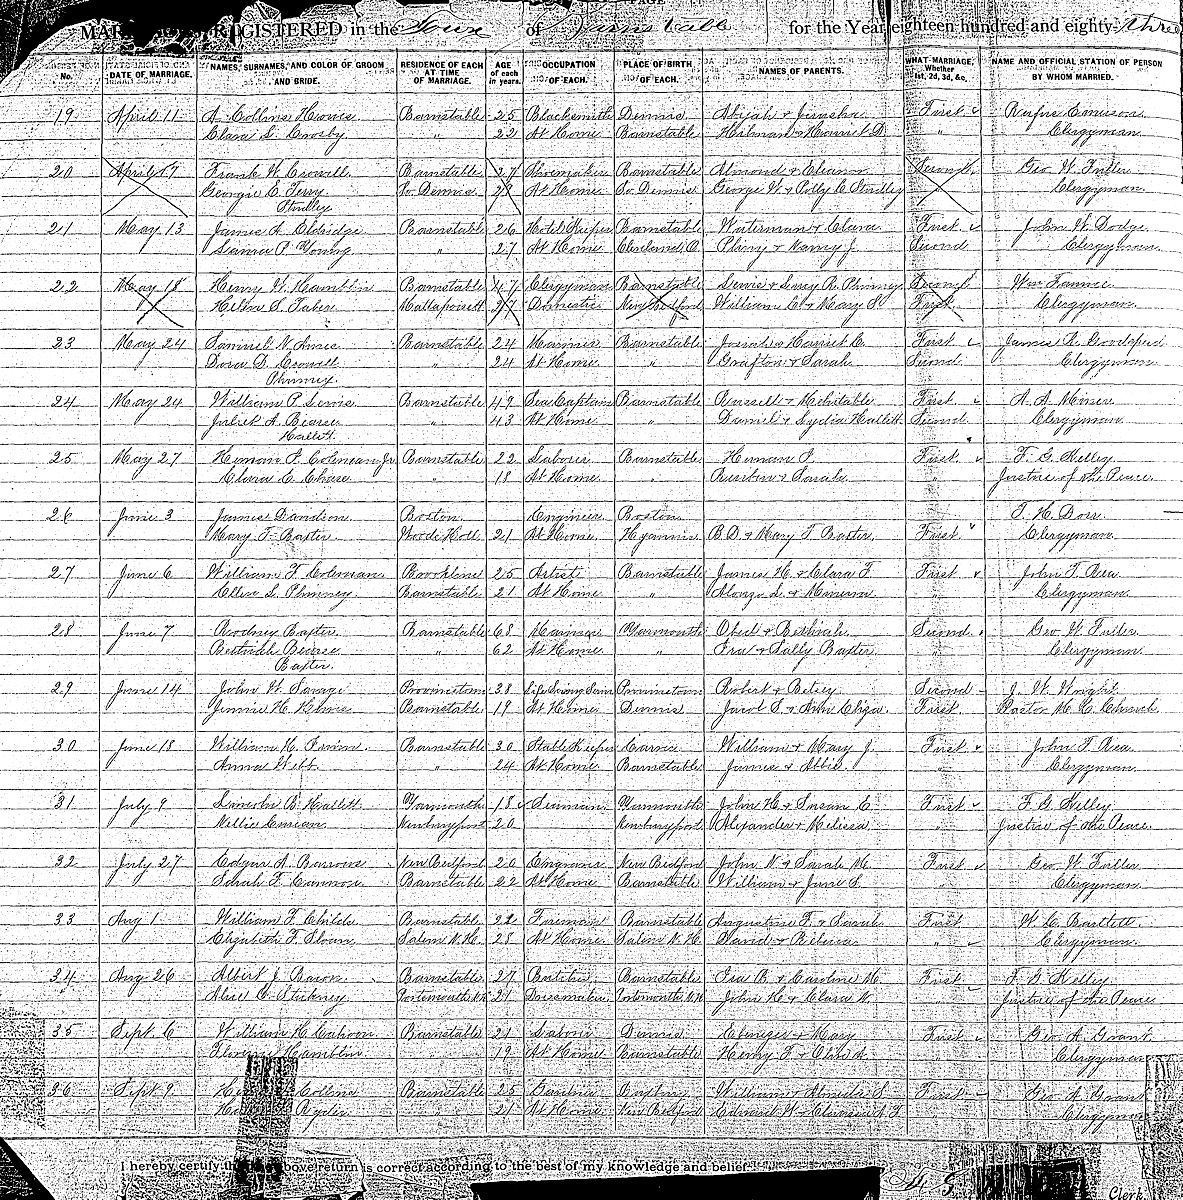 REGISTERED in the Town of Barnstable for the Year eighteen hundred and eighty-three
No. DATE OF MARRIAGE. NAMES, SURNAMES, AND COLOR OF GROOM AND BRIDE. RESIDENCE OF EACH AT TIME OF MARRIAGE. AGE of each in years. OCCUPATION OF EACH. PLACE OF BIRTH OF EACH. NAMES OF PARENTS. WHAT MARRIAGE, Whether 1st, 2d, 3d, &c. NAME AND OFFICIAL STATION OF PERSON BY WHOM MARRIED.
19 April 11 A. Collins Howes Barnstable 25 Blacksmith Dennis Abijah & Jerusha First Rufus
Clara L. Crosby " 22 At Home Barnstable & Harriet D. " Clergyman
20 April 17 Frank W. Crowell Barnstable 27 Shoemaker Barnstable Almond & Eleanor Second Geo W. Fuller
Georgie C. Terry So. Dennis At Home So. Dennis George W. & Polly C. Clergyman
21 May 13 James A. Eldridge Barnstable 26 Hotel Keeper Barnstable Waterman & Clara First John W. Dodge
P. Young " 27 At Home Cleveland, O. & Nancy J. Second Clergyman
22 May 18 Henry W. Hamblin Barnstable 47 Clergyman Barnstable R. Phinney Second Wm
Helen S. Taber Mattapoisett 27 Domestic New Bedford William C. & Mary P. First Clergyman
23 May 24 Samuel N. Ames Barnstable 24 Mariner Barnstable Josiah & Harriet C. First James R. Goodspeed
Dora D. Crowell " 24 At Home " Grafton & Sarah Second Clergyman
Phinney
24 May 24 William P. Lewis Barnstable 49 Sea Captain Barnstable Russell & Mehitable First A. A. Miner
Juliet A. Bearse " 43 At Home " Daniel & Lydia Hallett Second Clergyman
Hallett
25 May 27 Heman F. Coleman Jr Barnstable 22 Labour Barnstable Heman F. First F. G. Kelley
Clara C. Chase " 18 At Home " & Sarah " Justice of the Peace
26 June 3 James Davidson Boston Engineer Boston T. H. Dorr
Mary T. Baxter Woods Holl 21 At Home Hyannis B. D. & Mary T. Baxter First Clergyman
27 June 6 William F. Coleman Brookline 25 Artist Barnstable James H. & Clara F. First John T. Rea
Ellen L. Phinney Barnstable 21 At Home " Alonzo L. & Minerva " Clergyman
28 June 7 Rodney Baxter Barnstable 68 Mariner Yarmouth Obed & Bethiah Second Geo W. Fuller
Bethiah Bearse " 62 At Home " Ira & Sally Baxter " Clergyman
Baxter
29 June 14 John W. Savage Provincetown 38 Life Saving Serv Provincetown Robert & Betsey Second J. W. Wright
Jennie H. Howes Barnstable 19 At Home Dennis & Ann Eliza First Pastor M. E. Church
30 June 18 William H. Barnstable 30 Stable Keeper Carver William & Mary J. First John T. Rea
Anna Webb " 24 At Home Barnstable James & Abbie " Clergyman
31 July 9 Lincoln B. Hallett Yarmouth 18 Seaman Yarmouth John H. & Susan C. First F. G. Kelley
Nellie Newburyport 20 Newburyport Alexander & Melissa " Justice of the Peace
32 July 27 Edgar A. Barrows New Bedford 26 Engraver New Bedford John N. & Sarah M. First Geo W. Fuller
Sarah F. Cannon Barnstable 22 At Home Barnstable William & Jane S. " Clergyman
33 Aug 1 William F. Childs Barnstable 22 Foreman Barnstable Augustine F. & Sarah First W. C. Bartlett
Elizabeth F. Sloan Salem N.H. 28 At Home Salem N.H. David & Rebecca " Clergyman
34 Aug 26 Albert J. Bacon Barnstable 27 Barnstable Ira B. & Caroline M. First F. G. Kelley
Alice C. Stickney Portsmouth N.H. 21 Dressmaker Portsmouth N.H. John H. & Clara N. Justice of the Peace
35 Sept 6 William H. Cahoon Barnstable 21 Labour Dennis Ebenezer & Mary First Geo. A. Grant
Hamblin " 19 At Home Barnstable Henry F. & Eliza A. Clergyman
36 Sept 9 Collins Barnstable 25 Gardner William & Almeda S. First Geo A. Grant
Ryder " 21 At Home New Bedford Edward W. & F. Clergyman
I hereby certify that the above return is correct according to the best of my knowledge and belief.
Clerk